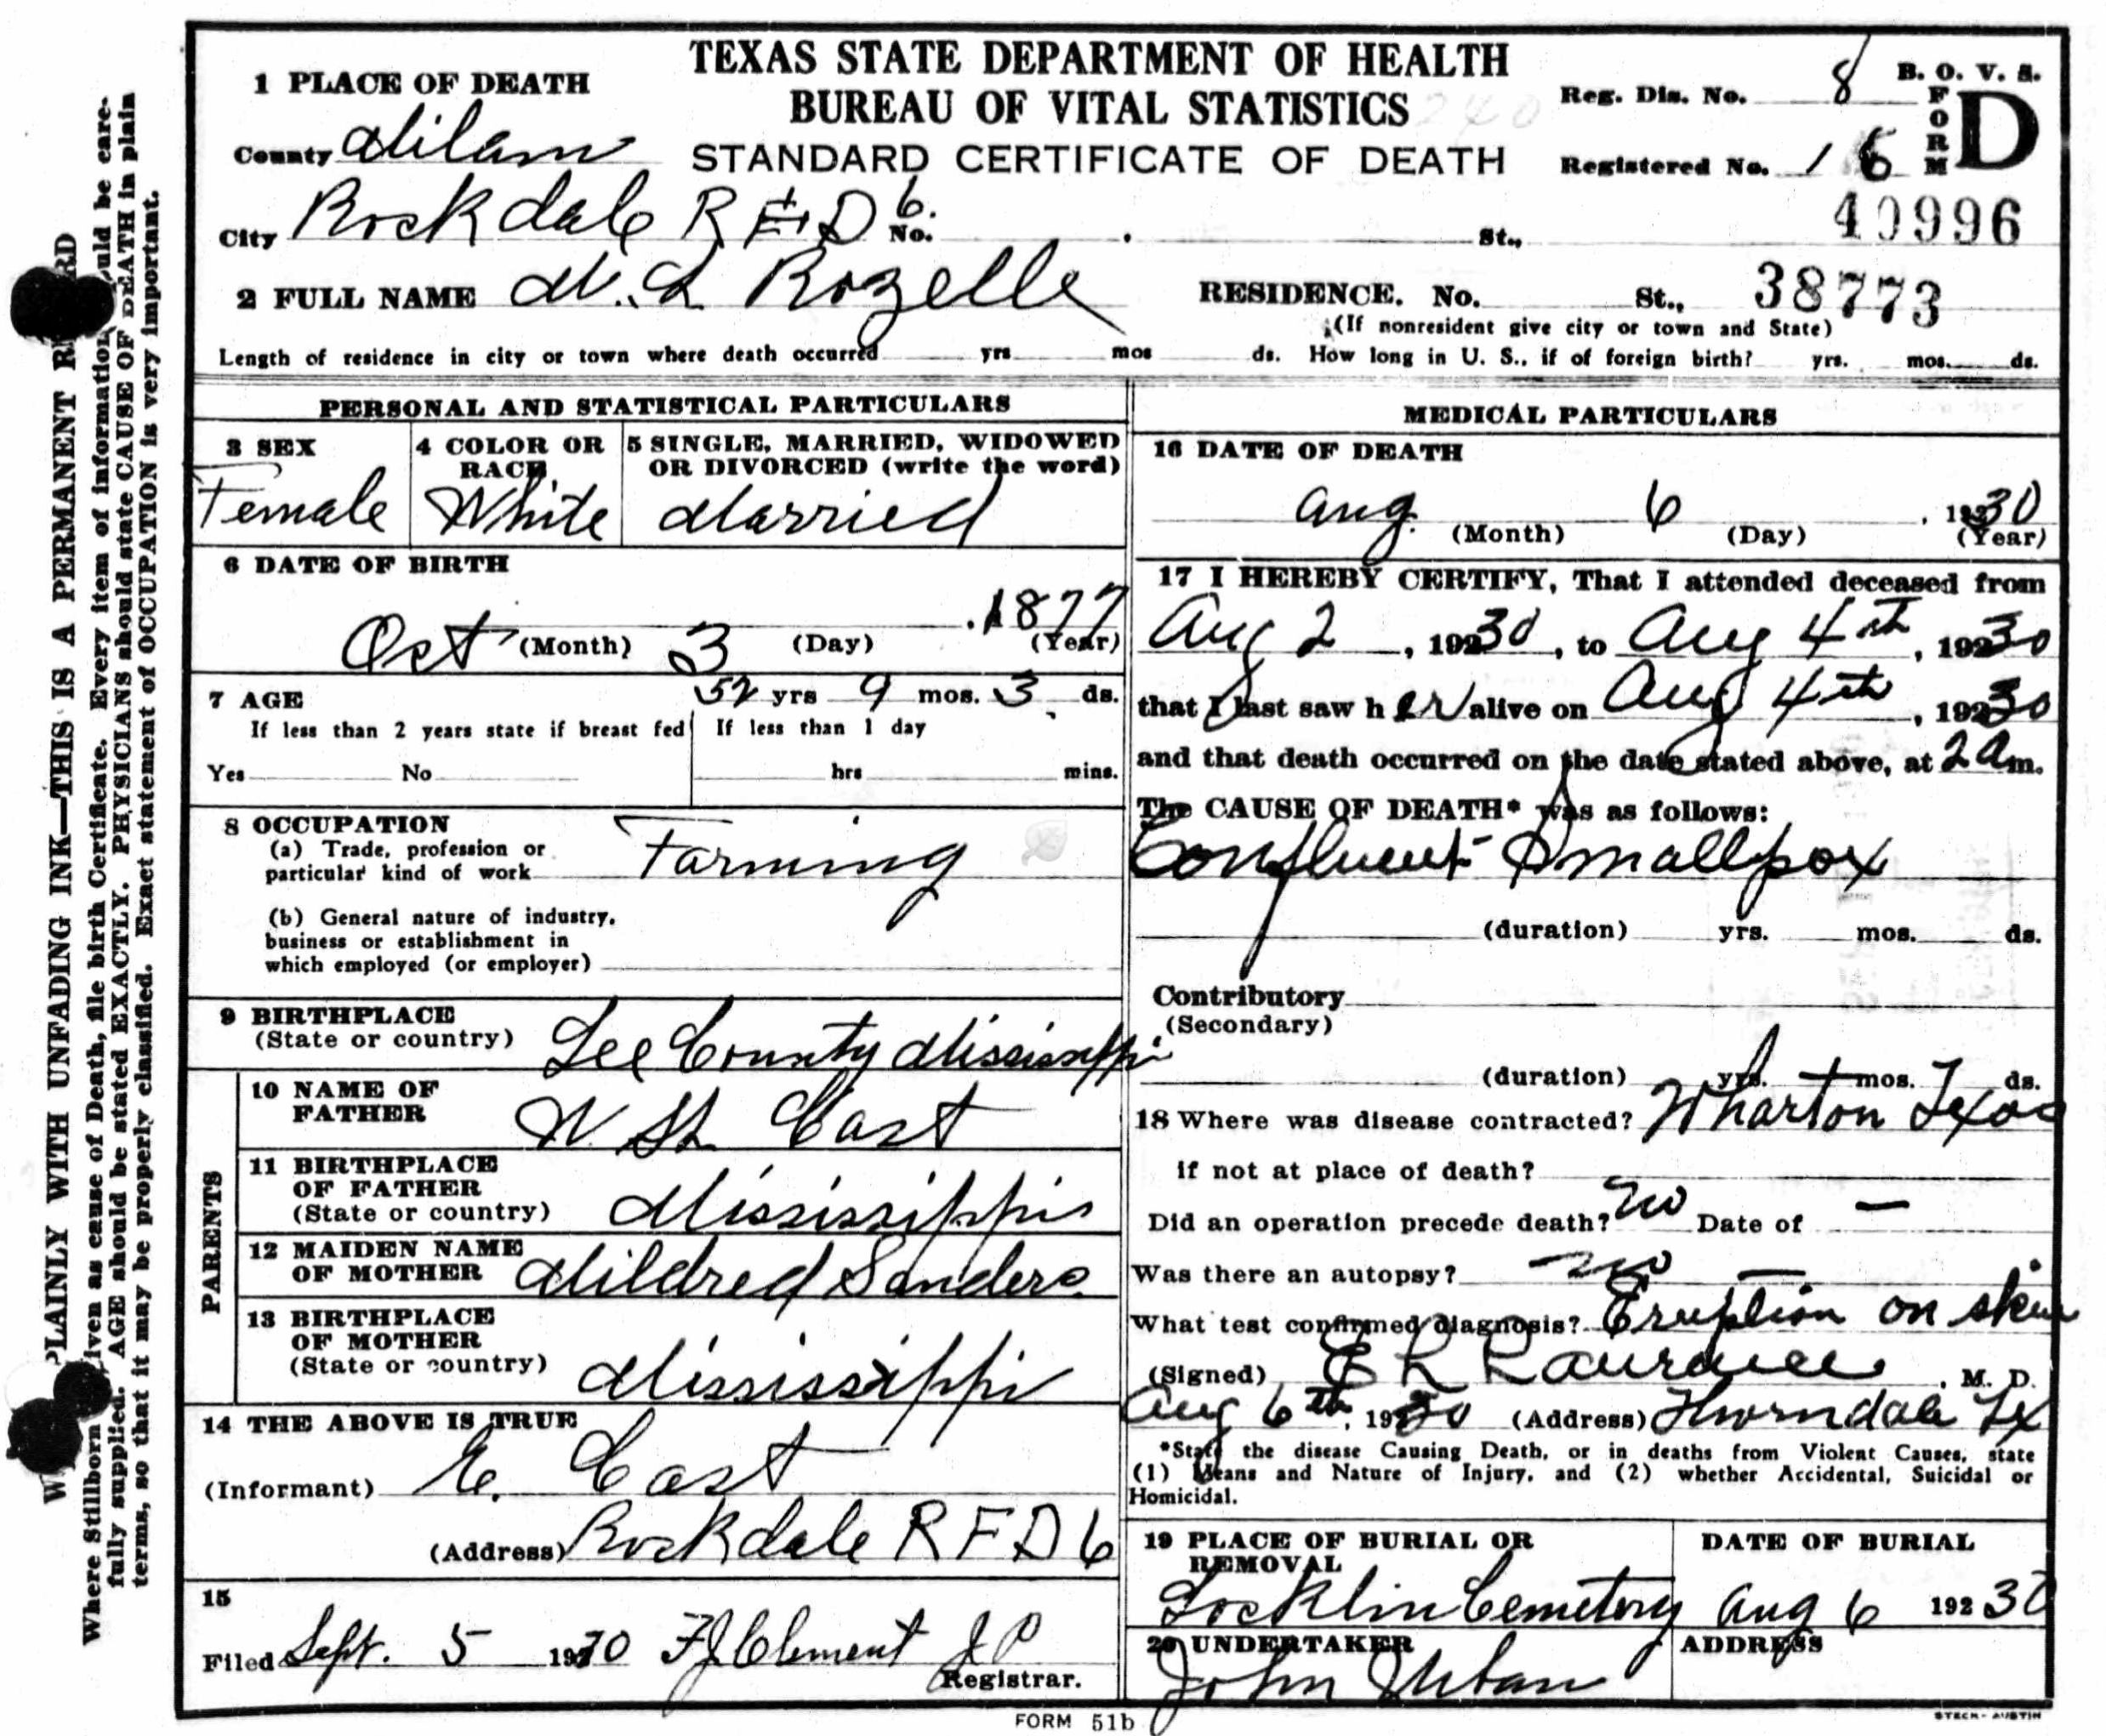 TEXAS STATE DEPARTMENT OF HEALTH
BUREAU OF VITAL STATISTICS
STANDARD CERTIFICATE OF DEATH
Reg. Dis. No. 8
Registered No. 16
B. O. V. S.
FORM D
40996
1 PLACE OF DEATH
County Milam
City Rockdale R F D 6. No. St.,
2 FULL NAME M. L Rozelle
RESIDENCE. No. St., 38773
(If nonresident give city or town and State)
Length of residence in city or town where death occurred yrs mos ds. How long in U. S., if of foreign birth? yrs. mos. ds.
PERSONAL AND STATISTICAL PARTICULARS
3 SEX
Female
4 COLOR OR RACE
White
5 SINGLE, MARRIED, WIDOWED
OR DIVORCED (write the word)
Married
6 DATE OF BIRTH
Oct (Month) 3 (Day) . 1877 (Year)
7 AGE 52 yrs 9 mos. 3 ds.
If less than 2 years state if breast fed
Yes No
If less than 1 day
hrs mins.
8 OCCUPATION
(a) Trade, profession or
particular kind of work Farming
(b) General nature of industry,
business or establishment in
which employed (or employer)
9 BIRTHPLACE
(State or country) Lee County Mississippi
PARENTS
10 NAME OF
FATHER W. H. Cast
11 BIRTHPLACE
OF FATHER
(State or country) Mississippi
12 MAIDEN NAME
OF MOTHER Mildred Sanders
13 BIRTHPLACE
OF MOTHER
(State or country) Mississippi
14 THE ABOVE IS TRUE
(Informant) E. Cast
(Address) Rockdale R F D 6
15
Filed Sept. 5 1930 F J Clement J P
Registrar.
MEDICAL PARTICULARS
16 DATE OF DEATH
Aug. 6 , 1930
(Month) (Day) (Year)
17 I HEREBY CERTIFY, That I attended deceased from
Aug 2 , 19230 , to Aug 4th , 19230
that I last saw h er alive on Aug 4th , 19230
and that death occurred on the date stated above, at 2 a m.
The CAUSE OF DEATH* was as follows:
Confluent Smallpox
(duration) yrs. mos. ds.
Contributory
(Secondary)
(duration) yrs. mos. ds.
18 Where was disease contracted? Wharton Texas
if not at place of death?
Did an operation precede death? no Date of —
Was there an autopsy? no —
What test confirmed diagnosis? Eruption on skin
(Signed) E R Laurance , M. D.
Aug 6th, 1930 (Address) Thorndale Tx
*State the disease Causing Death, or in deaths from Violent Causes, state
(1) Means and Nature of Injury, and (2) whether Accidental, Suicidal or
Homicidal.
19 PLACE OF BURIAL OR
REMOVAL
Locklin Cemetery
DATE OF BURIAL
Aug 6 192 30
20 UNDERTAKER
John Urban
ADDRESS
FORM 51b
STECK-AUSTIN
PLAINLY WITH UNFADING INK—THIS IS A PERMANENT
Where Stillborn given as cause of Death, file birth Certificate. Every item of information should be care-
fully supplied. AGE should be stated EXACTLY. PHYSICIANS should state CAUSE OF DEATH in plain
terms, so that it may be properly classified. Exact statement of OCCUPATION is very important.